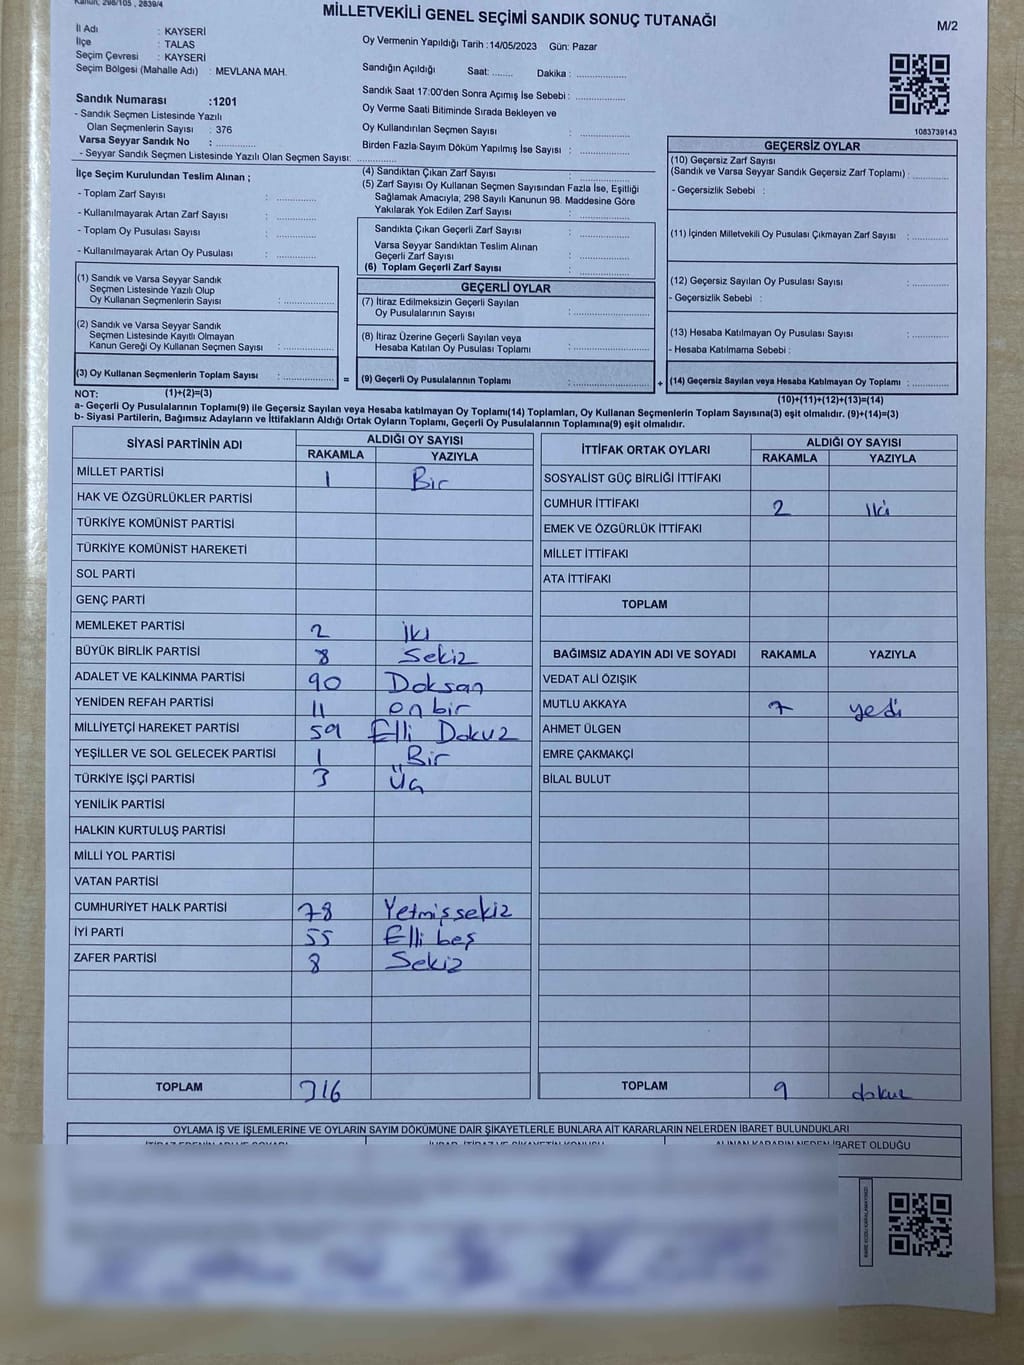 Kanun; 298/105 , 2839/4
MİLLETVEKİLİ GENEL SEÇİMİ SANDIK SONUÇ TUTANAĞI
M/2
İl Adı : KAYSERİ
İlçe : TALAS
Seçim Çevresi : KAYSERİ
Seçim Bölgesi (Mahalle Adı) : MEVLANA MAH.
Sandık Numarası :1201
- Sandık Seçmen Listesinde Yazılı
Olan Seçmenlerin Sayısı : 376
Varsa Seyyar Sandık No : ............
- Seyyar Sandık Seçmen Listesinde Yazılı Olan Seçmen Sayısı: ............
Oy Vermenin Yapıldığı Tarih :14/05/2023 Gün: Pazar
Sandığın Açıldığı Saat: ....... Dakika : ................
Sandık Saat 17:00'den Sonra Açımış İse Sebebi : ................
Oy Verme Saati Bitiminde Sırada Bekleyen ve
Oy Kullandırılan Seçmen Sayısı : ................
Birden Fazla Sayım Döküm Yapılmış İse Sayısı : ................
1083739143
İlçe Seçim Kurulundan Teslim Alınan ;
- Toplam Zarf Sayısı : ............
- Kullanılmayarak Artan Zarf Sayısı : ............
- Toplam Oy Pusulası Sayısı : ............
- Kullanılmayarak Artan Oy Pusulası : ............
(1) Sandık ve Varsa Seyyar Sandık
Seçmen Listesinde Yazılı Olup
Oy Kullanan Seçmenlerin Sayısı : ................
(2) Sandık ve Varsa Seyyar Sandık
Seçmen Listesinde Kayıtlı Olmayan
Kanun Gereği Oy Kullanan Seçmen Sayısı : ................
(3) Oy Kullanan Seçmenlerin Toplam Sayısı : ................
(1)+(2)=(3)
(4) Sandıktan Çıkan Zarf Sayısı : ................
(5) Zarf Sayısı Oy Kullanan Seçmen Sayısından Fazla İse, Eşitliği
Sağlamak Amacıyla; 298 Sayılı Kanunun 98. Maddesine Göre
Yakılarak Yok Edilen Zarf Sayısı : ................
Sandıkta Çıkan Geçerli Zarf Sayısı : ................
Varsa Seyyar Sandıktan Teslim Alınan
Geçerli Zarf Sayısı : ................
(6) Toplam Geçerli Zarf Sayısı : ................
GEÇERLİ OYLAR
(7) İtiraz Edilmeksizin Geçerli Sayılan
Oy Pusulalarının Sayısı : ................
(8) İtiraz Üzerine Geçerli Sayılan veya
Hesaba Katılan Oy Pusulası Toplamı : ................
= (9) Geçerli Oy Pusulalarının Toplamı : ................ +
GEÇERSİZ OYLAR
(10) Geçersiz Zarf Sayısı
(Sandık ve Varsa Seyyar Sandık Geçersiz Zarf Toplamı) : ............
- Geçersizlik Sebebi :
(11) İçinden Milletvekili Oy Pusulası Çıkmayan Zarf Sayısı : ............
(12) Geçersiz Sayılan Oy Pusulası Sayısı : ............
- Geçersizlik Sebebi :
(13) Hesaba Katılmayan Oy Pusulası Sayısı : ............
- Hesaba Katılmama Sebebi :
(14) Geçersiz Sayılan veya Hesaba Katılmayan Oy Toplamı : ............
(10)+(11)+(12)+(13)=(14)
NOT:
a- Geçerli Oy Pusulalarının Toplamı(9) ile Geçersiz Sayılan veya Hesaba katılmayan Oy Toplamı(14) Toplamları, Oy Kullanan Seçmenlerin Toplam Sayısına(3) eşit olmalıdır. (9)+(14)=(3)
b- Siyasi Partilerin, Bağımsız Adayların ve İttifakların Aldığı Ortak Oyların Toplamı, Geçerli Oy Pusulalarının Toplamına(9) eşit olmalıdır.
SİYASİ PARTİNİN ADI ALDIĞI OY SAYISI
RAKAMLA YAZIYLA
MİLLET PARTİSİ 1 Bir
HAK VE ÖZGÜRLÜKLER PARTİSİ
TÜRKİYE KOMÜNİST PARTİSİ
TÜRKİYE KOMÜNİST HAREKETİ
SOL PARTİ
GENÇ PARTİ
MEMLEKET PARTİSİ 2 İki
BÜYÜK BİRLİK PARTİSİ 8 Sekiz
ADALET VE KALKINMA PARTİSİ 90 Doksan
YENİDEN REFAH PARTİSİ 11 on bir
MİLLİYETÇİ HAREKET PARTİSİ 59 Elli Dokuz
YEŞİLLER VE SOL GELECEK PARTİSİ 1 Bir
TÜRKİYE İŞÇİ PARTİSİ 3 Üç
YENİLİK PARTİSİ
HALKIN KURTULUŞ PARTİSİ
MİLLİ YOL PARTİSİ
VATAN PARTİSİ
CUMHURİYET HALK PARTİSİ 78 Yetmişsekiz
İYİ PARTİ 55 Elli beş
ZAFER PARTİSİ 8 Sekiz
TOPLAM 316
İTTİFAK ORTAK OYLARI ALDIĞI OY SAYISI
RAKAMLA YAZIYLA
SOSYALİST GÜÇ BİRLİĞİ İTTİFAKI
CUMHUR İTTİFAKI 2 İki
EMEK VE ÖZGÜRLÜK İTTİFAKI
MİLLET İTTİFAKI
ATA İTTİFAKI
TOPLAM
BAĞIMSIZ ADAYIN ADI VE SOYADI RAKAMLA YAZIYLA
VEDAT ALİ ÖZIŞIK
MUTLU AKKAYA 7 yedi
AHMET ÜLGEN
EMRE ÇAKMAKÇİ
BİLAL BULUT
TOPLAM 9 dokuz
OYLAMA İŞ VE İŞLEMLERİNE VE OYLARIN SAYIM DÖKÜMÜNE DAİR ŞİKAYETLERLE BUNLARA AİT KARARLARIN NELERDEN İBARET BULUNDUKLARI
ALINAN KARARIN NEDEN İBARET OLDUĞU